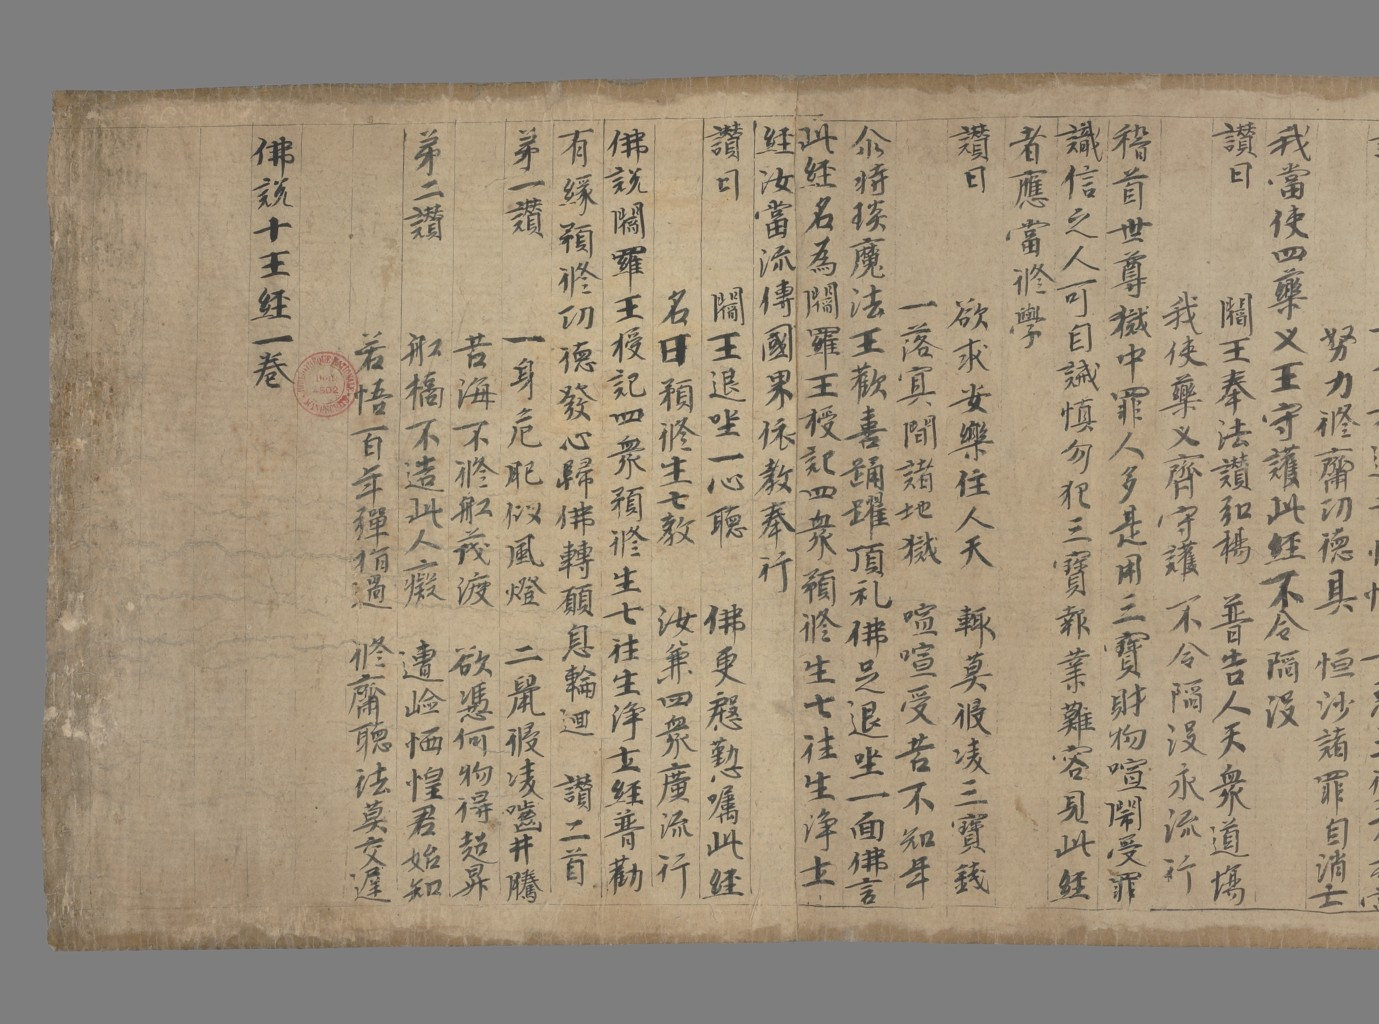 努力修齋功德具　恒沙諸罪自消亡
我當使四藥叉王守護此經不令陷没
讚曰　閻王奉法讚弘楊　普告人天衆道場
我使藥叉齊守護　不令陷没永流行
稽首世尊獄中罪人多是用三寶財物喧閙受罪
識信之人可自誡慎勿犯三寶報業難容見此經
者應當修學
讚曰　欲求安樂住人天　輙莫侵凌三寶錢
一落冥間諸地獄　喧喧受苦不知年
尒時琰魔法王歡喜踊躍頂礼佛足退坐一面佛言
此經名為閻羅王授記四衆預修生七往生淨土
經汝當流傳國界依教奉行
讚曰　閻王退坐一心聽　佛更慇懃囑此經
名曰預修生七教　汝兼四衆廣流行
佛說閻羅王授記四衆預修生七往生淨土經普勸
有緣預修功德發心歸佛轉願息輪迴　讚二首
弟一讚　一身危脃似風燈　二鼠侵凌嚙井騰
苦海不修舡筏渡　欲憑何物得超昇
弟二讚　舡橋不造此人癡　遭嶮恓惶君始知
若悟百年彈指過　修齋聽法莫交遲
佛說十王經一卷